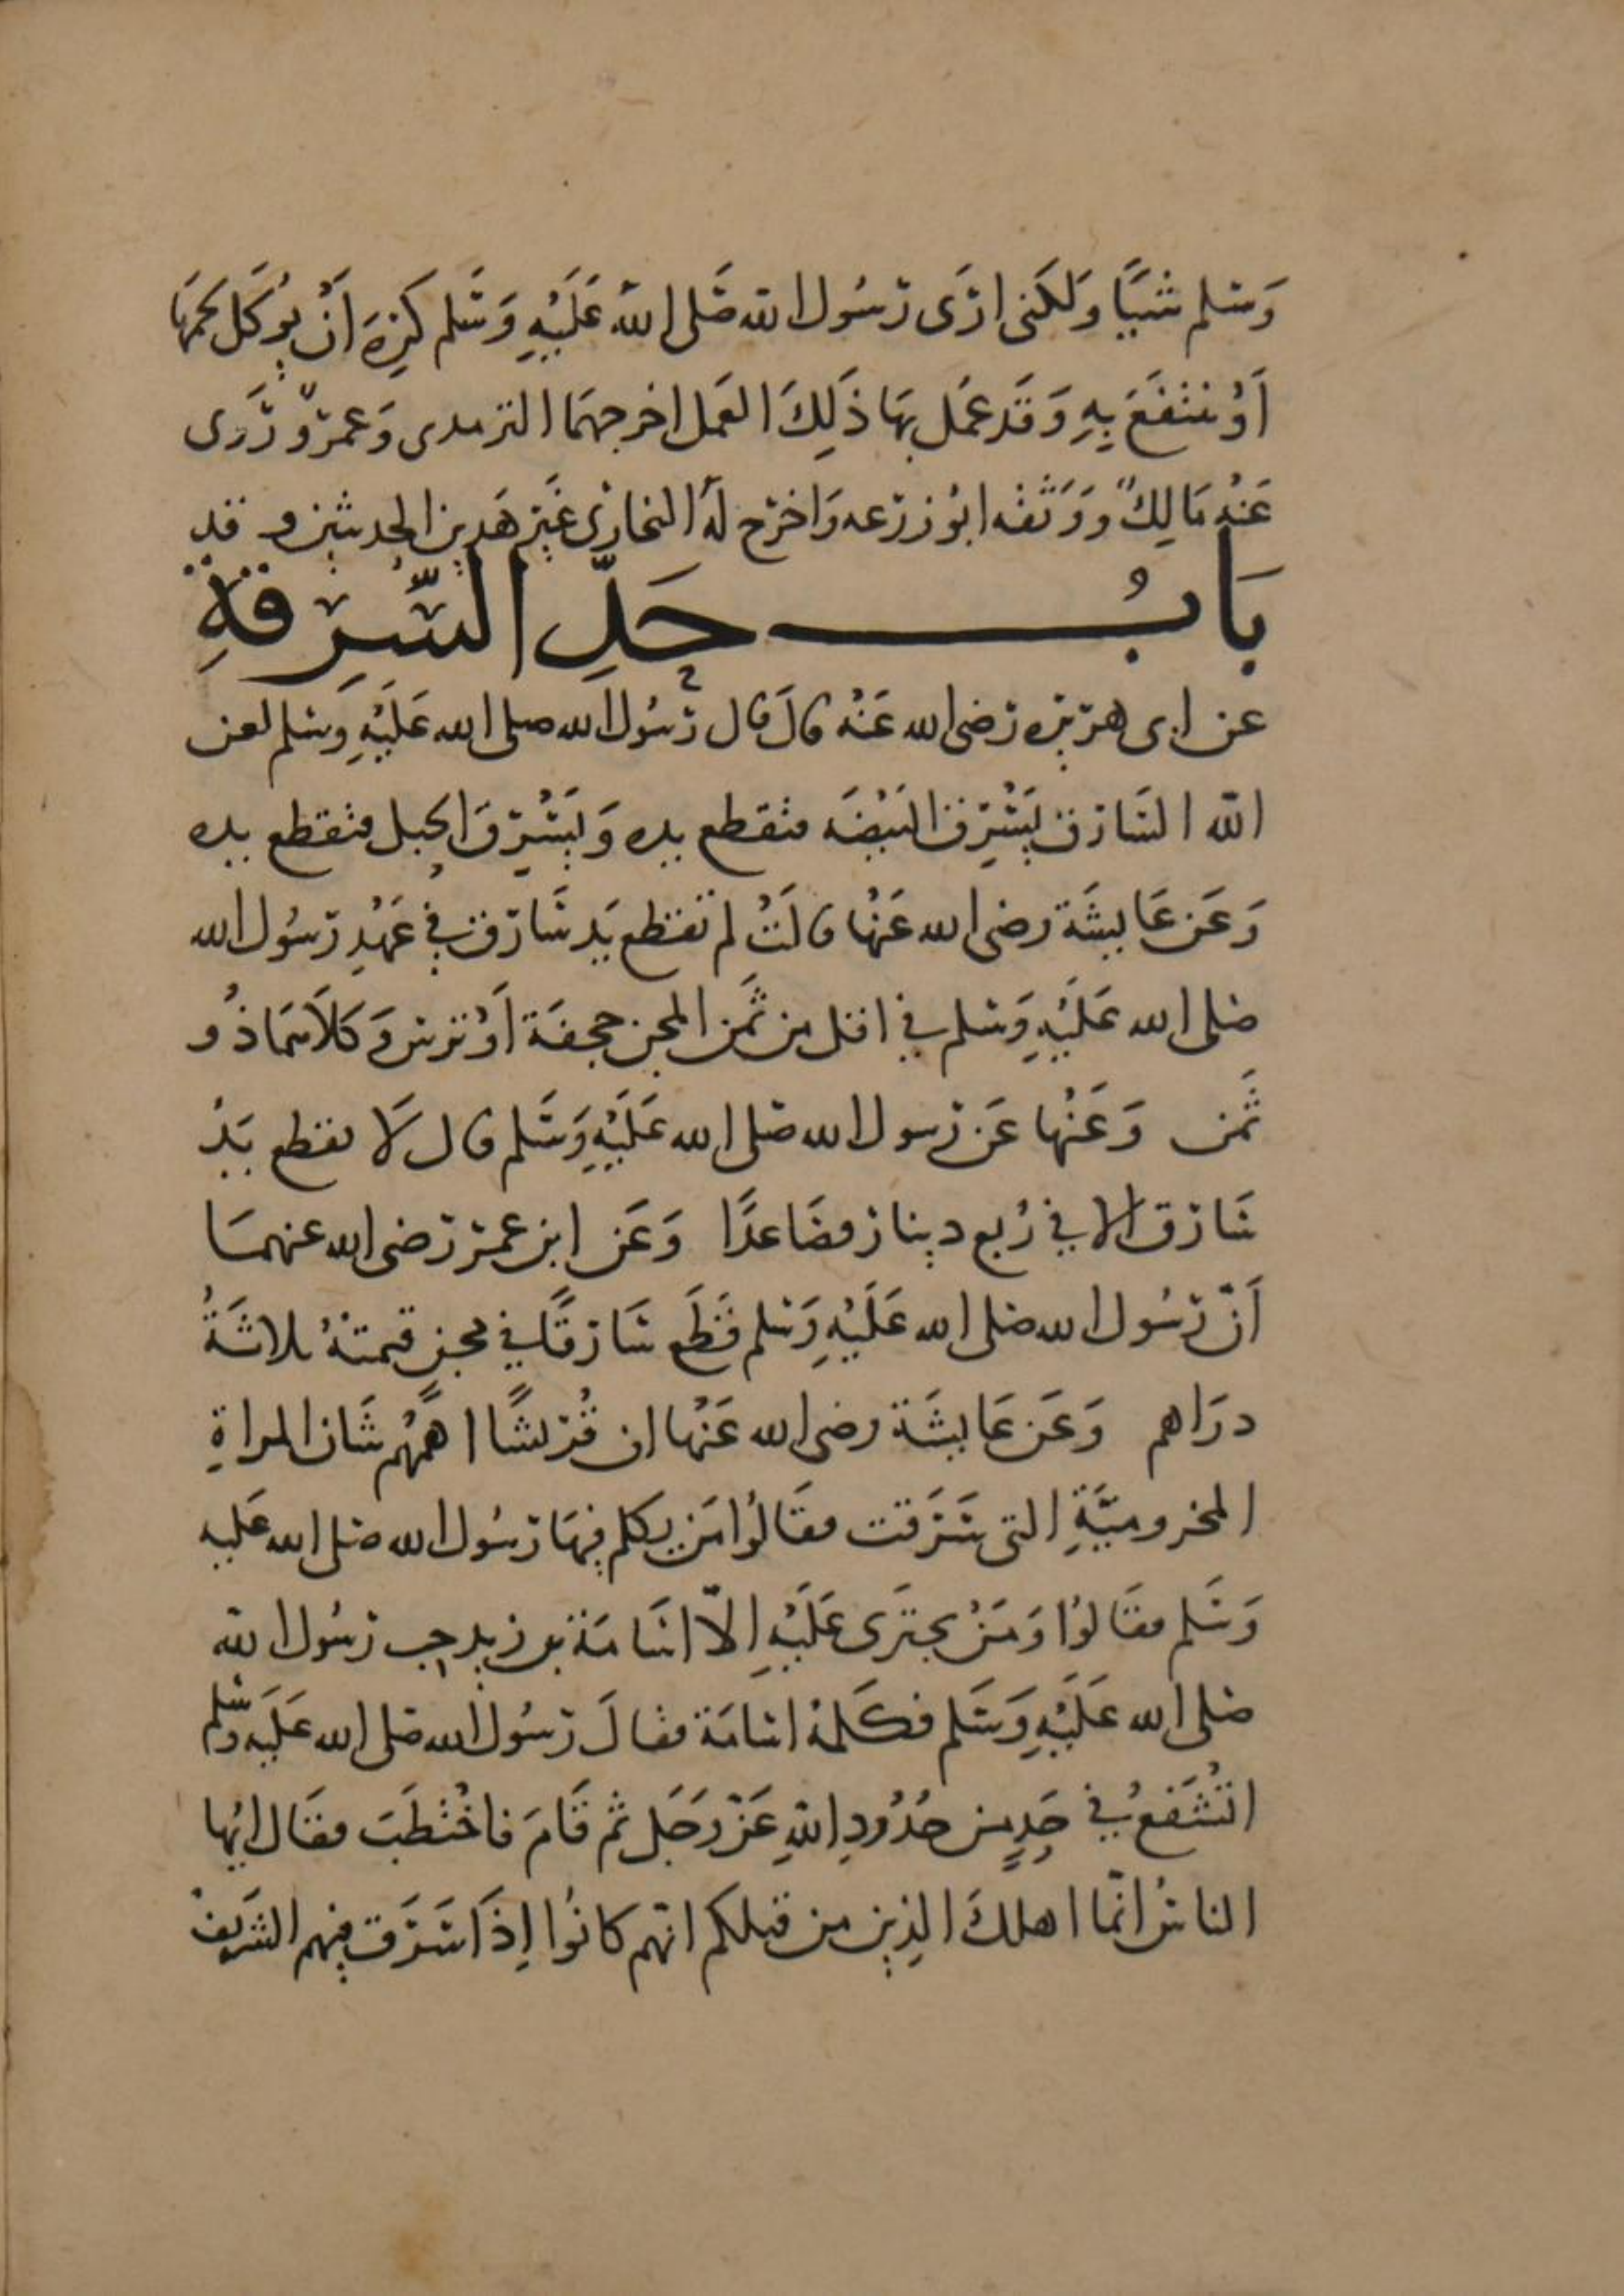 وَسَلم شَيًا وَلكَنى ارَى رَسُول الله صَلى الله عَلَيْهِ وَسَلم كَرِهَ اَنْ يُوكَل لحمهَا
اَوْ ينتفَعَ بِهِ وَقَد عمَل بهَا ذَلِكَ العَمل اخرجهمَا الترمدى وَعمرٌو رَوى
عَنهُ مَالِكٌ وَوَثَّقه ابُو زرَعه وَاخرَج لهُ البخارى غَير هَدين الحديثين وقد
بَابُ حَدِّ السَّرِقَةِ
عن ابى هريره رَضى الله عَنْهُ قالَ قال رَسُول الله صلى الله عَلَيْهِ وَسَلم لعن
الله السَارق يَسْرِق البَيْضَه فتقطع يده وَيَسْرِقَ الحبل فتقطع يده
وَعَن عَايشَة رضى الله عَنْها قالَتْ لم تقطع يَد سَارق فِي عَهْدِ رَسُول الله
صَلى الله عَلَيْهِ وَسَلم في اقل من ثَمن المجن حجفَة اَوْ ترس وَكلاَهمَا ذُو
ثَمن وَعَنْها عَن رَسول الله صَلى الله عَلَيْهِ وَسَلم قال لَا تقطع يَدُ
سَارق الا في رُبع دينار فصَاعدًا وَعَن ابن عمَر رَضى الله عنهمَا
اَنّ رَسُول الله صَلى الله عَلَيْهِ وَسَلم قَطَع سَارقًا في مجنٍ قيمتهُ ثلاثَةُ
درَاهم وَعَن عَايشَة رضى الله عَنْها ان قُرَيشًا اهمَّهُم شَان المراةِ
المخزوميَّةِ التى سَرَقت فقَالوُا مَن يكلم فِيهَا رَسُول الله صَلى الله عَليه
وَسَلم فقَالوُا وَمَنْ يجتَرى عَلَيْهِ الاّ اسَامَة بن زيد حِب رَسُول الله
صَلى الله عَلَيْهِ وَسَلم فكَلمهُ اسَامَة فقالَ رَسُول الله صَلى الله عَلَيه وَسَلم
اتَشْفَعُ في حَدٍ من حدُوُدِ اللهِ عَزّ وَجَل ثم قَامَ فاخْتطَبَ فقَال ايُها
الناسُ انّما اهلكَ الذِين من قبلكم انّهم كانُوا اِذَا سَرَق فِيهم الشَرِيفُ